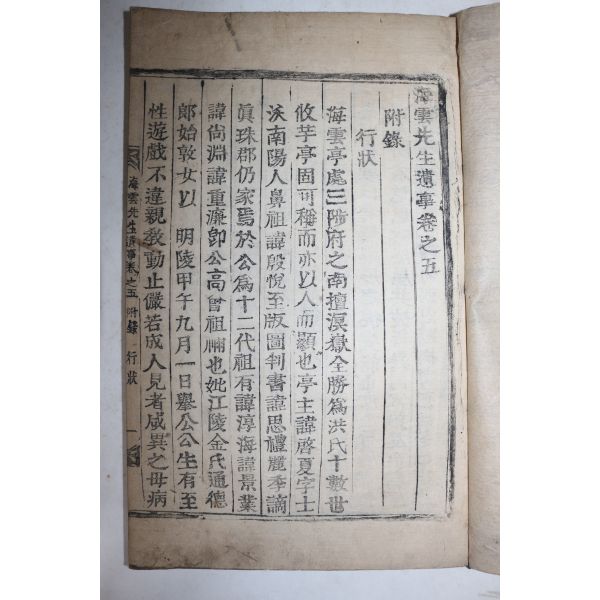 海雲先生遺事卷之五
附錄
行狀
海雲亭處三陟府之南擅溟嶽全勝爲洪氏十數世
攸芋亭固可稱而亦以人而顯也亭主諱啓夏字士
沃南陽人鼻祖諱殷悅至版圖判書諱思禮麗季謫
眞珠郡仍家焉於公爲十二代祖有諱淳海諱景業
諱尙淵諱重濂卽公高曾祖禰也妣江陵金氏通德
郞始敦女以 明陵甲午九月一日擧公公生有至
性遊戲不違親敎動止儼若成人見者咸異之母病
海雲先生遺事卷之五 附錄 行狀 一